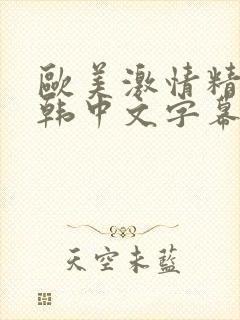 歐美激情精
韩中文字幕
天空未藍